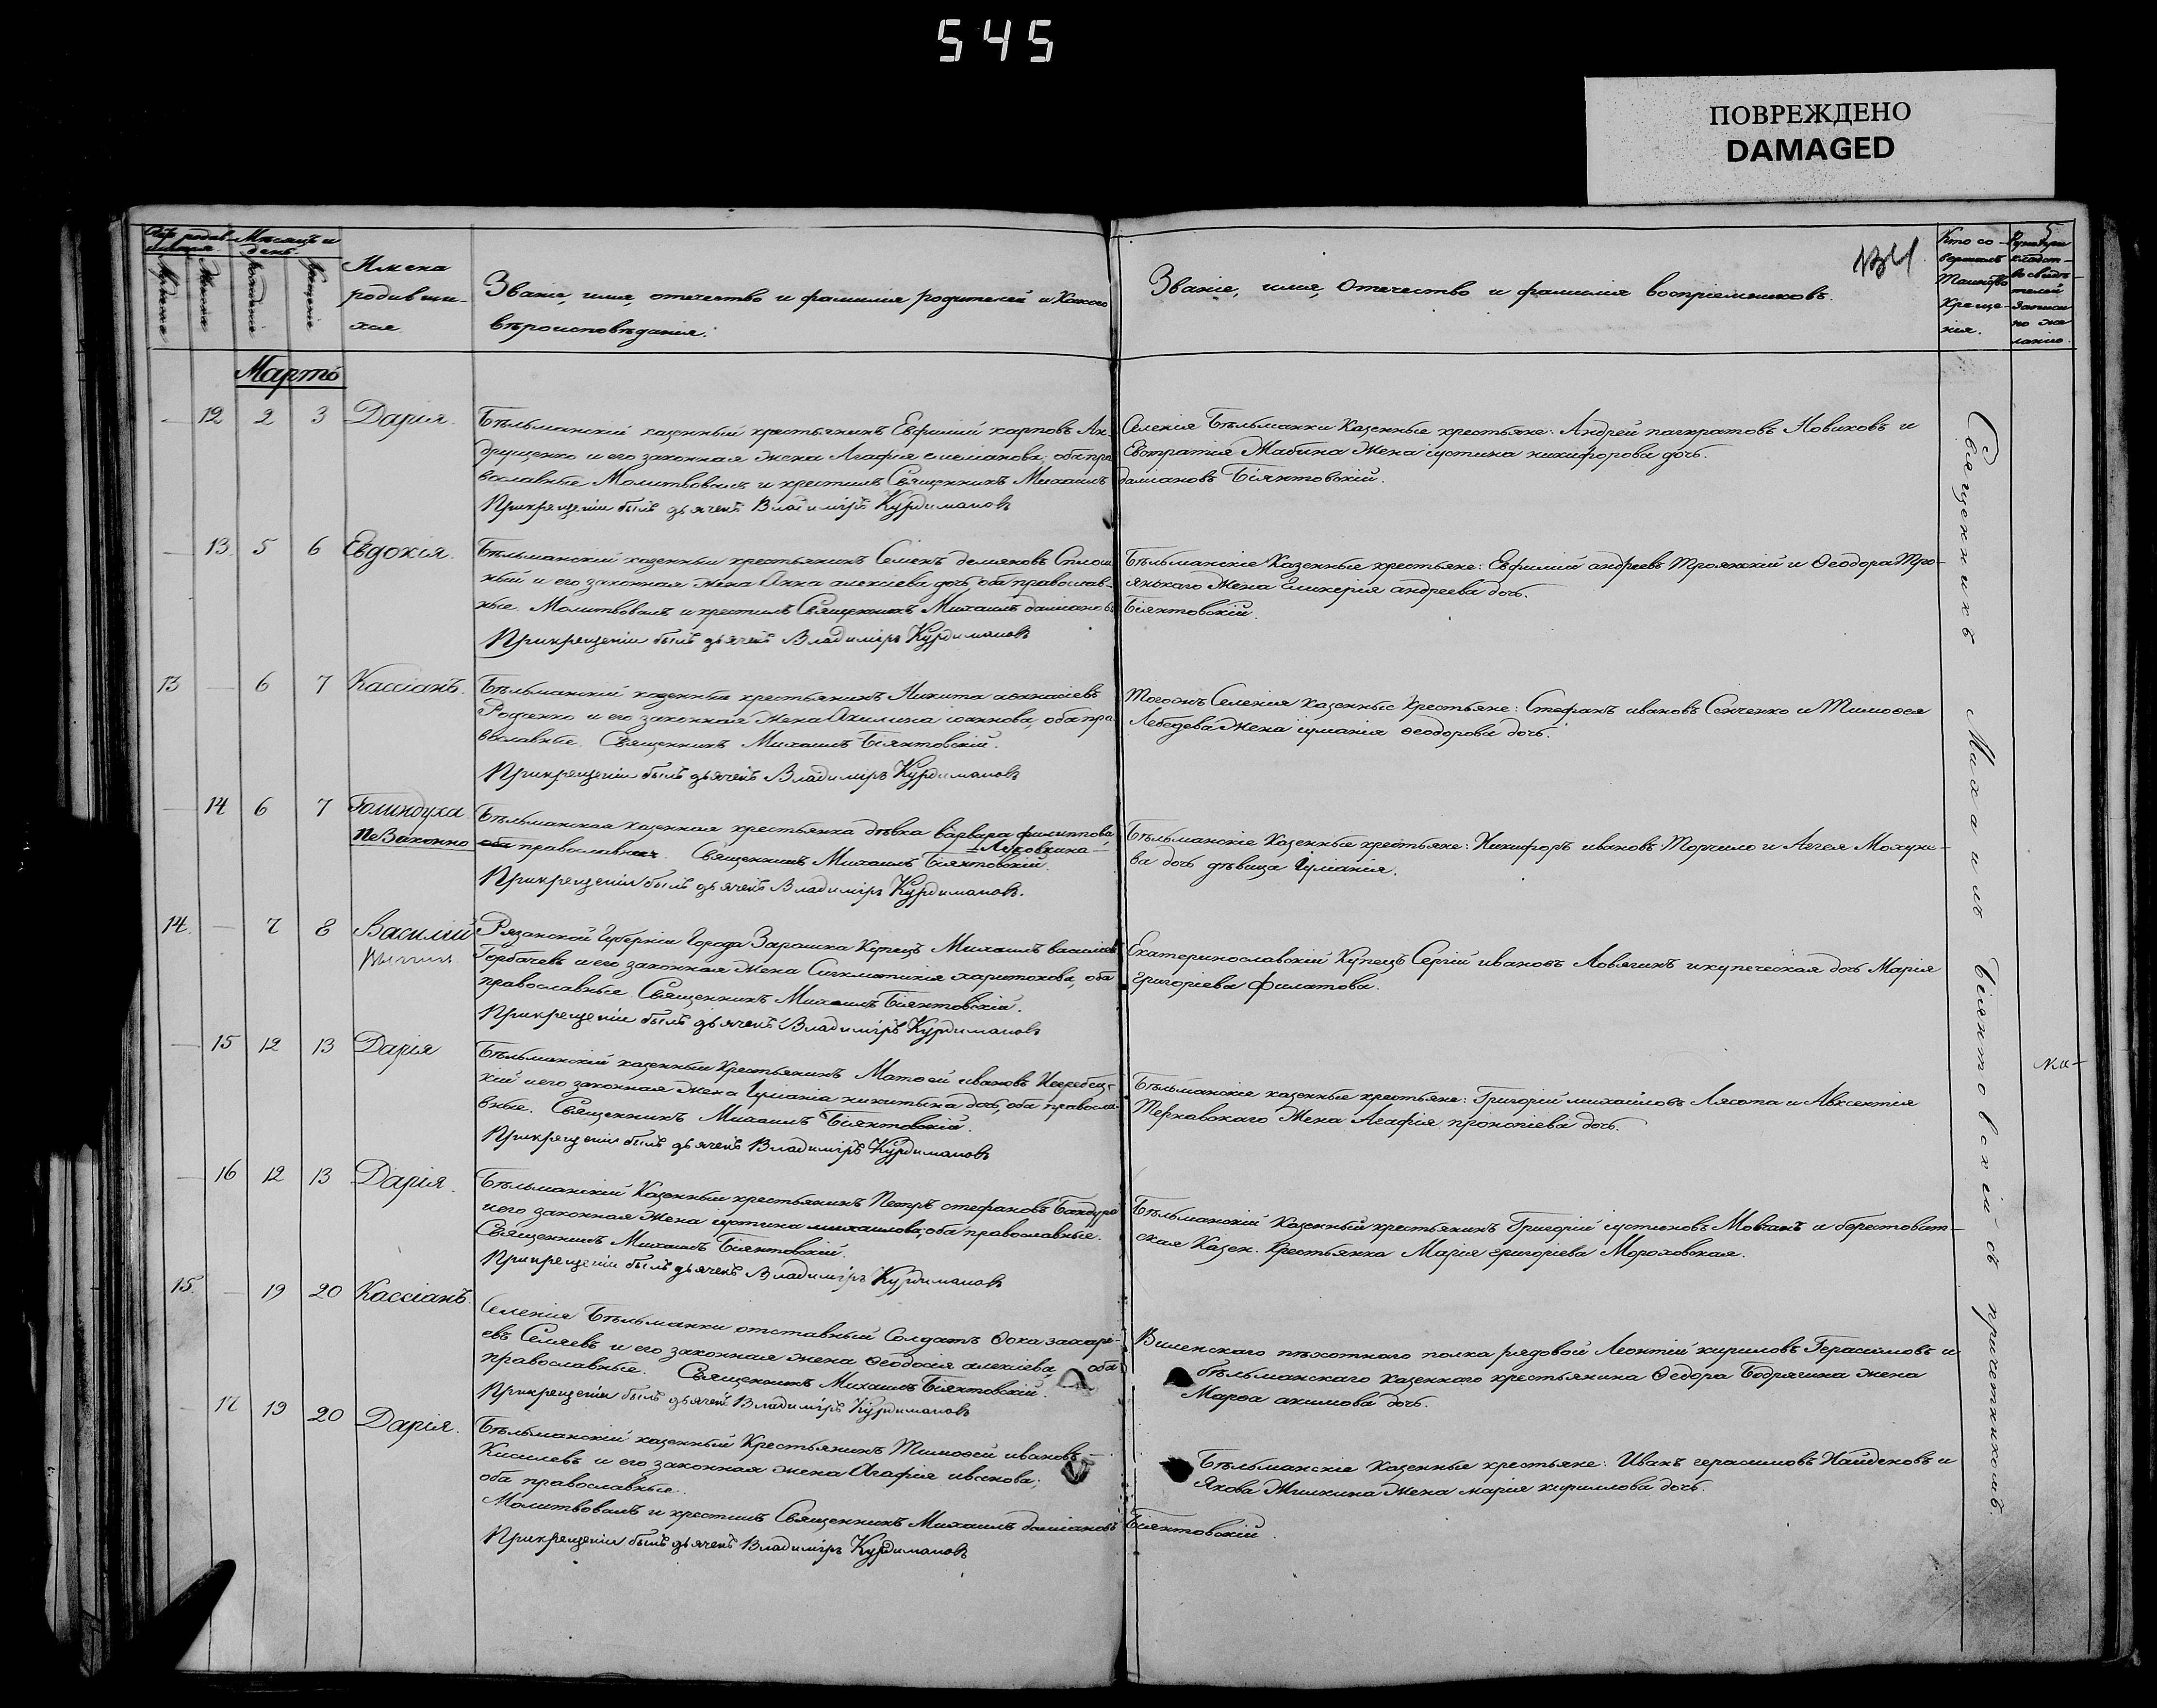 545
ПОВРЕЖДЕНО
DAMAGED
Мѣсяцъ и день.
Имена родившихся.
Званіе, имя, отечество и фамилія родителей и какого
вѣроисповѣданія.
Званіе, имя, Отечество и фамилія воспріемниковъ.
Кто совершалъ Таинство Крещенія.
5
Мартъ
12 2 3 Дарія.
Бѣльманскій казенный крестьянинъ Евфимій карповъ Ан-
друщенко и его законная жена Агафія оба пра
вославные Молитвовалъ и крестилъ Священникъ Михаилъ
даміановъ Біянтовскій.
Прикрещеніи былъ дьячекъ Владиміръ Курдимановъ
Селенія Бѣльманки Казенные крестьяне: Андрей панкратовъ Новиковъ и
Евстратія Жабина Жена іустина никифорова дочь.
13 5 6 Евдокія.
Бѣльманскій казенный крестьянинъ Семенъ демяновъ Сплош
ный и его законная жена Анна алексіева дочь оба православ-
ные. Молитвовалъ и крестилъ Священникъ Михаилъ даміановъ
Біянтовскій.
Прикрещеніи былъ дьячекъ Владиміръ Курдимановъ
Бѣльманскіе Казенные крестьяне: Евфимій андреевъ Троянскій и Ѳеодора Тро-
янскаго Жена Гликерія андреева дочь.
13 — 6 7 Кассіанъ.
Бѣльманскій казенный крестьянинъ Никита аѳанасіевъ
и его законная жена Акилина іоаннова, оба пра
вославные. Священникъ Михаилъ Біянтовскій.
Прикрещеніи былъ дьячекъ Владиміръ Курдимановъ
Тогожъ Селенія Казенные Крестьяне: Стефанъ ивановъ Сенченко и Тимоѳея
Лебедева Жена іуліанія ѳеодорова дочь.
14 6 7 Голиндуха
Не Законно
Бѣльманская казенная крестьянка дѣвка варвара филиппова
православная. Священникъ Михаилъ Біянтовскій.
Прикрещеніи былъ дьячекъ Владиміръ Курдимановъ.
Бѣльманскіе Казенные крестьяне: Никифоръ ивановъ Торчило и Аггея
ва дочь дѣвица Іуліанія.
14. — 7 8 Василій
Рязанской Губерніи Города Зарайска Купецъ Михаилъ василіевъ
Горбачевъ и его законная жена Сигклитикія харитонова, оба
православные. Священникъ Михаилъ Біянтовскій.
Прикрещеніи былъ дьячекъ Владиміръ Курдимановъ
Екатеринославскій Купецъ Сергій ивановъ Ловягинъ и купеческая дочь Марія
григоріева филатова.
15 12 13 Дарія
Бѣльманскій казенный Крестьянинъ Матѳей ивановъ
кій и его законная жена Іуліанія никитына дочь, оба правосла-
вные. Священникъ Михаилъ Біянтовскій.
Прикрещеніи былъ дьячекъ Владиміръ Курдимановъ
Бѣльманскіе казенные крестьяне: Григорій михайловъ Лясота и Авксентія
Терновскаго Жена Агафія прокопіева дочь.
16 12 13 Дарія.
Бѣльманскій Казенный крестьянинъ Петръ стефановъ Бандура
и его законная жена іустина михаилова, оба православные.
Священникъ Михаилъ Біянтовскій.
Прикрещеніи былъ дьячекъ Владиміръ Курдимановъ
Бѣльманскій Казенный крестьянинъ Григорій іустиновъ Мовчанъ и берестоват-
ская Казен. Крестьянка Марія григоріева Мороховская.
15. — 19 20 Кассіанъ.
Селенія Бѣльманки отставный Солдатъ Ѳока захарі-
евъ Селяевъ и его законная жена Ѳеодосія алексіева, оба
православные. Священникъ Михаилъ Біянтовскій.
Прикрещеніи былъ дьячекъ Владиміръ Курдимановъ
Виленскаго пѣхотнаго полка рядовой Леонтій кириловъ Герасимовъ и
бѣльманскаго казеннаго крестьянина Ѳедора Бодрягина жена
Марѳа акимова дочь.
17 19 20 Дарія.
Бѣльманскій казенный Крестьянинъ Тимоѳей ивановъ
Киселевъ и его законная жена Агафія
оба православные.
Молитвовалъ и крестилъ Священникъ Михаилъ даміановъ
Біянтовскій
Прикрещеніи былъ дьячекъ Владиміръ Курдимановъ
Бѣльманскіе казенные крестьяне: Иванъ герасимовъ Найденовъ и
Якова Жилкина Жена марія кириллова дочь.
Священникъ Михаилъ Біянтовскій съ причетникомъ.